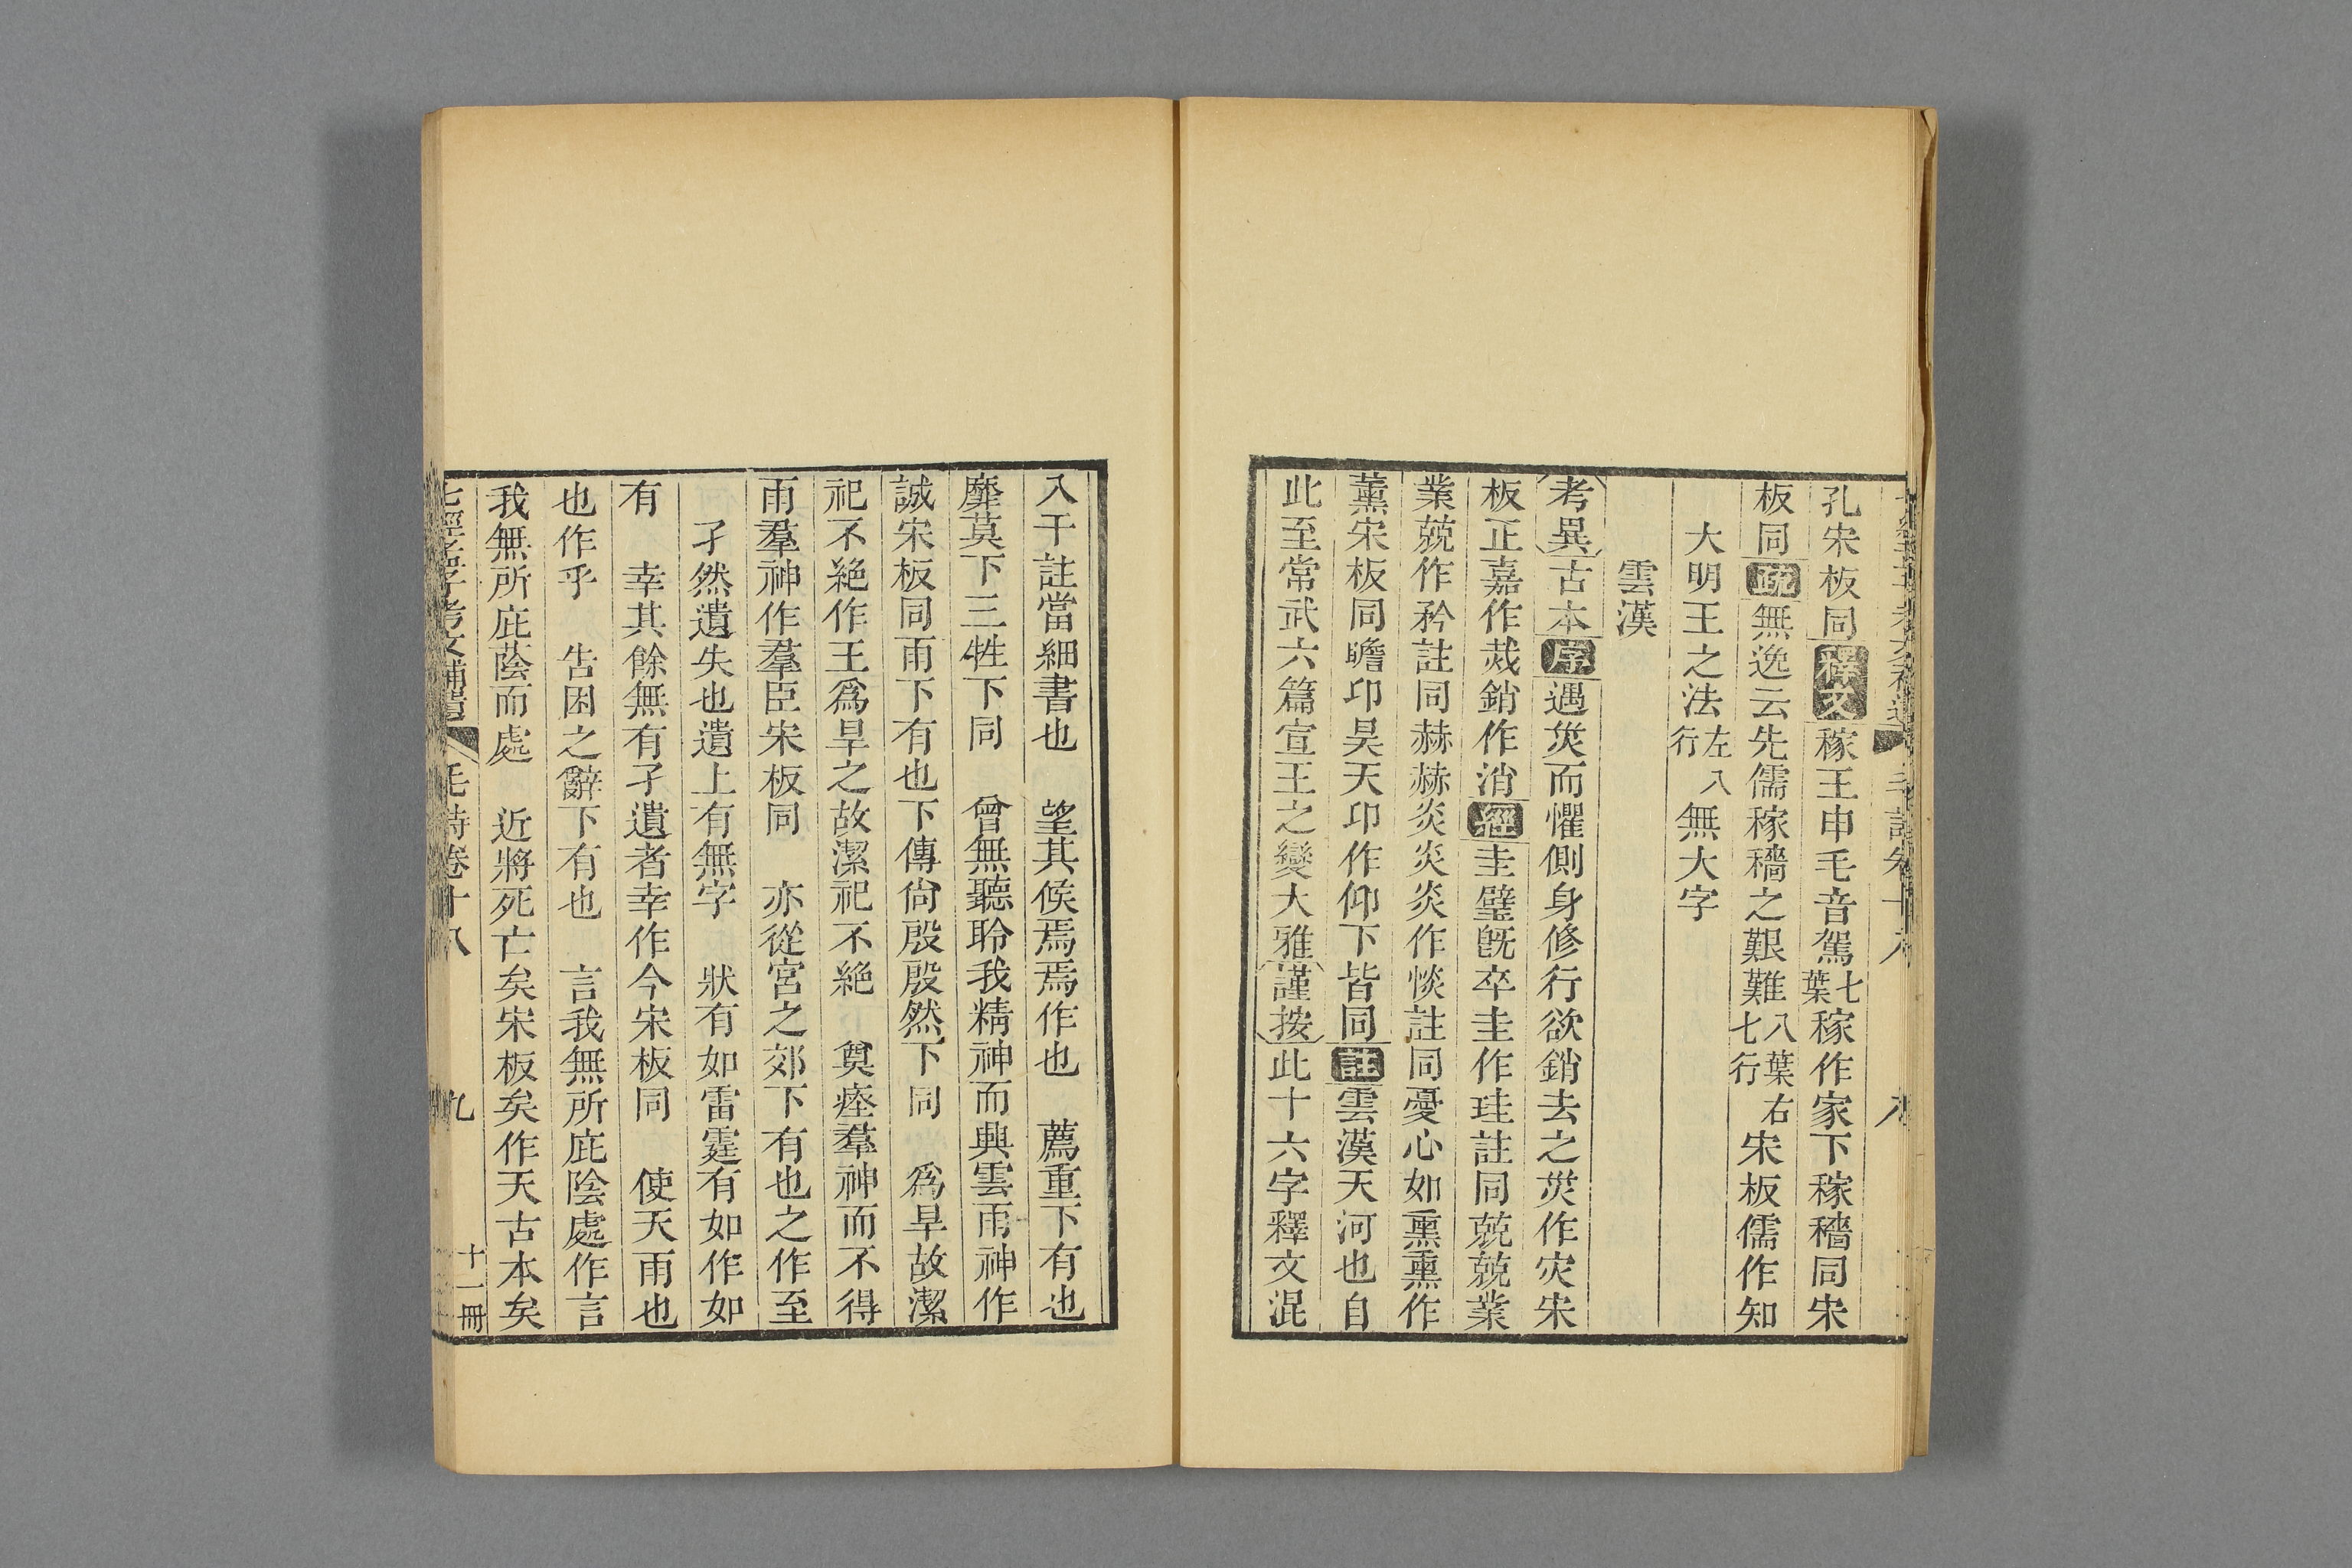 孔宋板同釋文稼王申毛音駕七葉稼作家下稼穡同宋
板同疏無逸云先儒稼穡之艱難八葉右七行宋板儒作知
大明王之法左八行無大字
雲漢
考異古本序遇烖而懼側身修行欲銷去之烖作灾宋
板正嘉作烖銷作消經圭璧旣卒圭作珪註同兢兢業
業兢作矜註同赫赫炎炎炎作惔註同憂心如熏熏作
薰宋板同瞻卬昊天卬作仰下皆同註雲漢天河也自
此至常武六篇宣王之變大雅謹按此十六字釋文混
入于註當細書也　望其候焉焉作也　薦重下有也
靡莫下三牲下同　曾無聽聆我精神而興雲雨神作
誠宋板同雨下有也下傳尙殷殷然下同　爲旱故潔
祀不絶作王爲旱之故潔祀不絶　奠瘞羣神而不得
雨羣神作羣臣宋板同　亦從宮之郊下有也之作至
孑然遺失也遺上有無字　狀有如雷霆有如作如
有　幸其餘無有孑遺者幸作今宋板同　使天雨也
也作乎　告困之辭下有也　言我無所庇陰處作言
我無所庇蔭而處　近將死亡矣宋板矣作天古本矣
七經孟子考文補遺　毛詩卷十八　九　十一冊